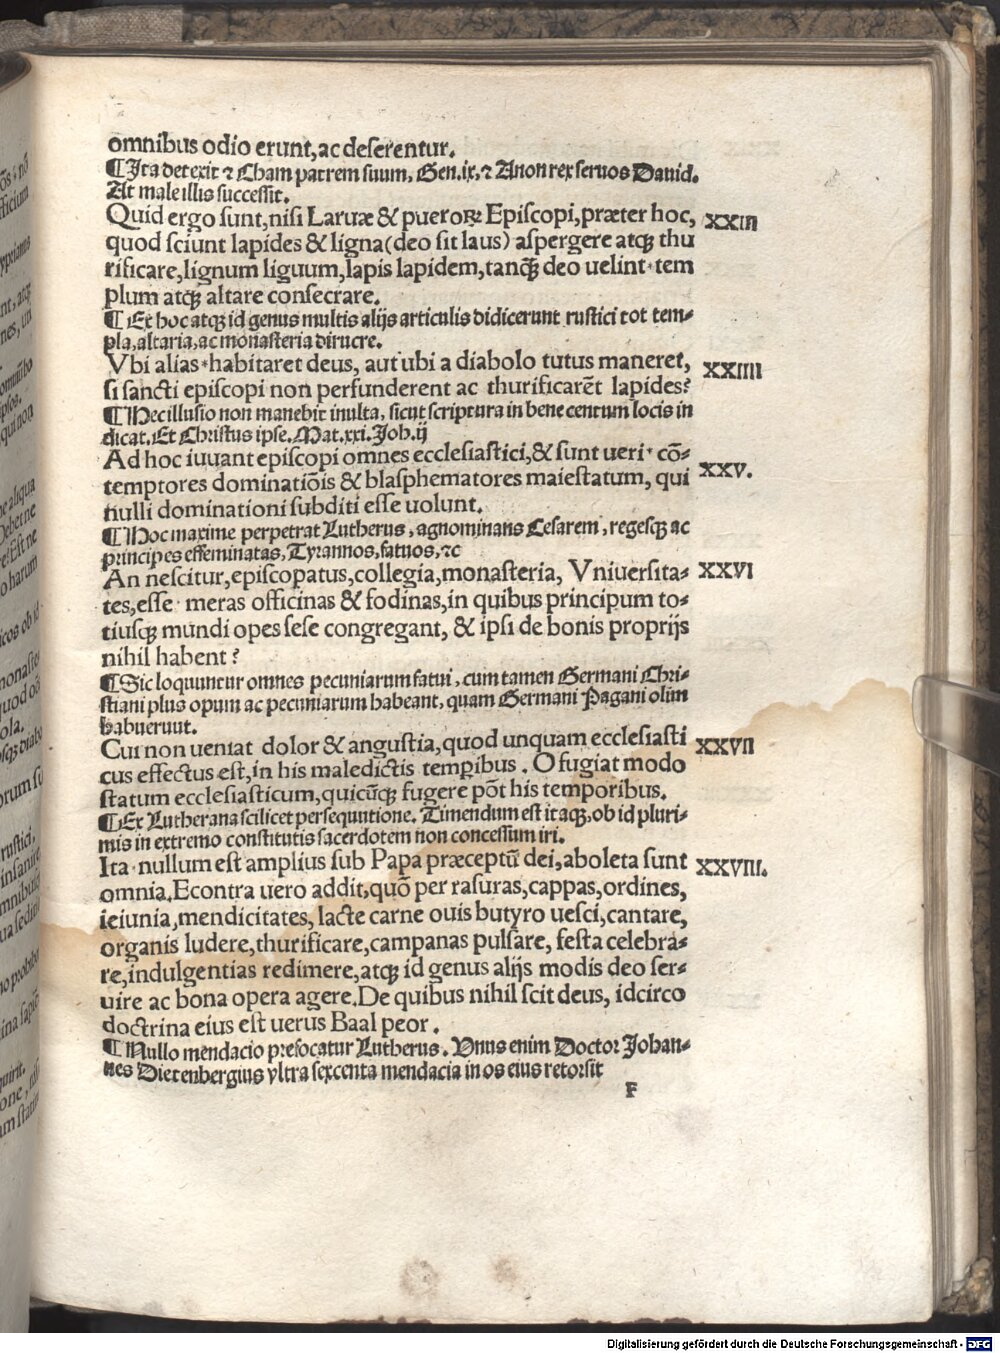 omnibus odio erunt, ac deserentur.
¶ Ita detexit ⁊ Cham patrem suum, Gen.ix, ⁊ Anon rex seruos Dauid.
At male illis successit.
Quid ergo sunt, nisi Laruæ & pueroꝝ Episcopi, præter hoc, XXIII
quod sciunt lapides & ligna (deo sit laus) aspergere atqꝫ thu
rificare, lignum liguum, lapis lapidem, tanqꝫ deo uelint tem
plum atqꝫ altare consecrare.
¶ Ex hoc atqꝫ id genus multis alijs articulis didicerunt rustici tot tem⸗
pla, altaria, ac monasteria diruere.
Vbi alias habitaret deus, aut ubi a diabolo tutus maneret, XXIIII
si sancti episcopi non perfunderent ac thurificarēt lapides?
¶ Hec illusio non manebit inulta, sicut scriptura in bene centum locis in
dicat. Et Christus ipse. Mat.xxi. Joh.ij
Ad hoc iuuant episcopi omnes ecclesiastici, & sunt ueri cō⸗ XXV.
temptores dominatiōis & blasphematores maiestatum, qui
nulli dominationi subditi esse uolunt.
¶ Hoc maxime perpetrat Lutherus, agnominans Cesarem, regesqꝫ ac
principes effeminatas, Tyrannos, fatuos, ⁊c
An nescitur, episcopatus, collegia, monasteria, Vniuersita⸗ XXVI
tes, esse meras officinas & fodinas, in quibus principum to⸗
tiusqꝫ mundi opes sese congregant, & ipsi de bonis proprijs
nihil habent?
¶ Sic loquuntur omnes pecuniarum fatui, cum tamen Germani Chri⸗
stiani plus opum ac pecuniarum habeant, quam Germani Pagani olim
habuerunt.
Cui non ueniat dolor & angustia, quod unquam ecclesiasti XXVII
cus effectus est, in his maledictis temporibus. O fugiat modo
statum ecclesiasticum, quicūqꝫ fugere pōt his temporibus.
¶ Ex Lutherana scilicet persequutione. Timendum est itaqꝫ, ob id pluri⸗
mis in extremo constitutis sacerdotem non concessum iri.
Ita nullum est amplius sub Papa præceptū dei, aboleta sunt XXVIII.
omnia. Econtra uero addit, quō per rasuras, cappas, ordines,
ieiunia, mendicitates, lacte carne ouis butyro uesci, cantare,
organis ludere, thurificare, campanas pulsare, festa celebra⸗
re, indulgentias redimere, atqꝫ id genus alijs modis deo ser⸗
uire ac bona opera agere. De quibus nihil scit deus, idcirco
doctrina eius est uerus Baal peor.
¶ Nullo mendacio prefocatur Lutherus. Vnus enim Doctor Johan⸗
nes Dietenbergius vltra sexcenta mendacia in os eius retorsit
F
Digitalisierung gefördert durch die Deutsche Forschungsgemeinschaft - DFG